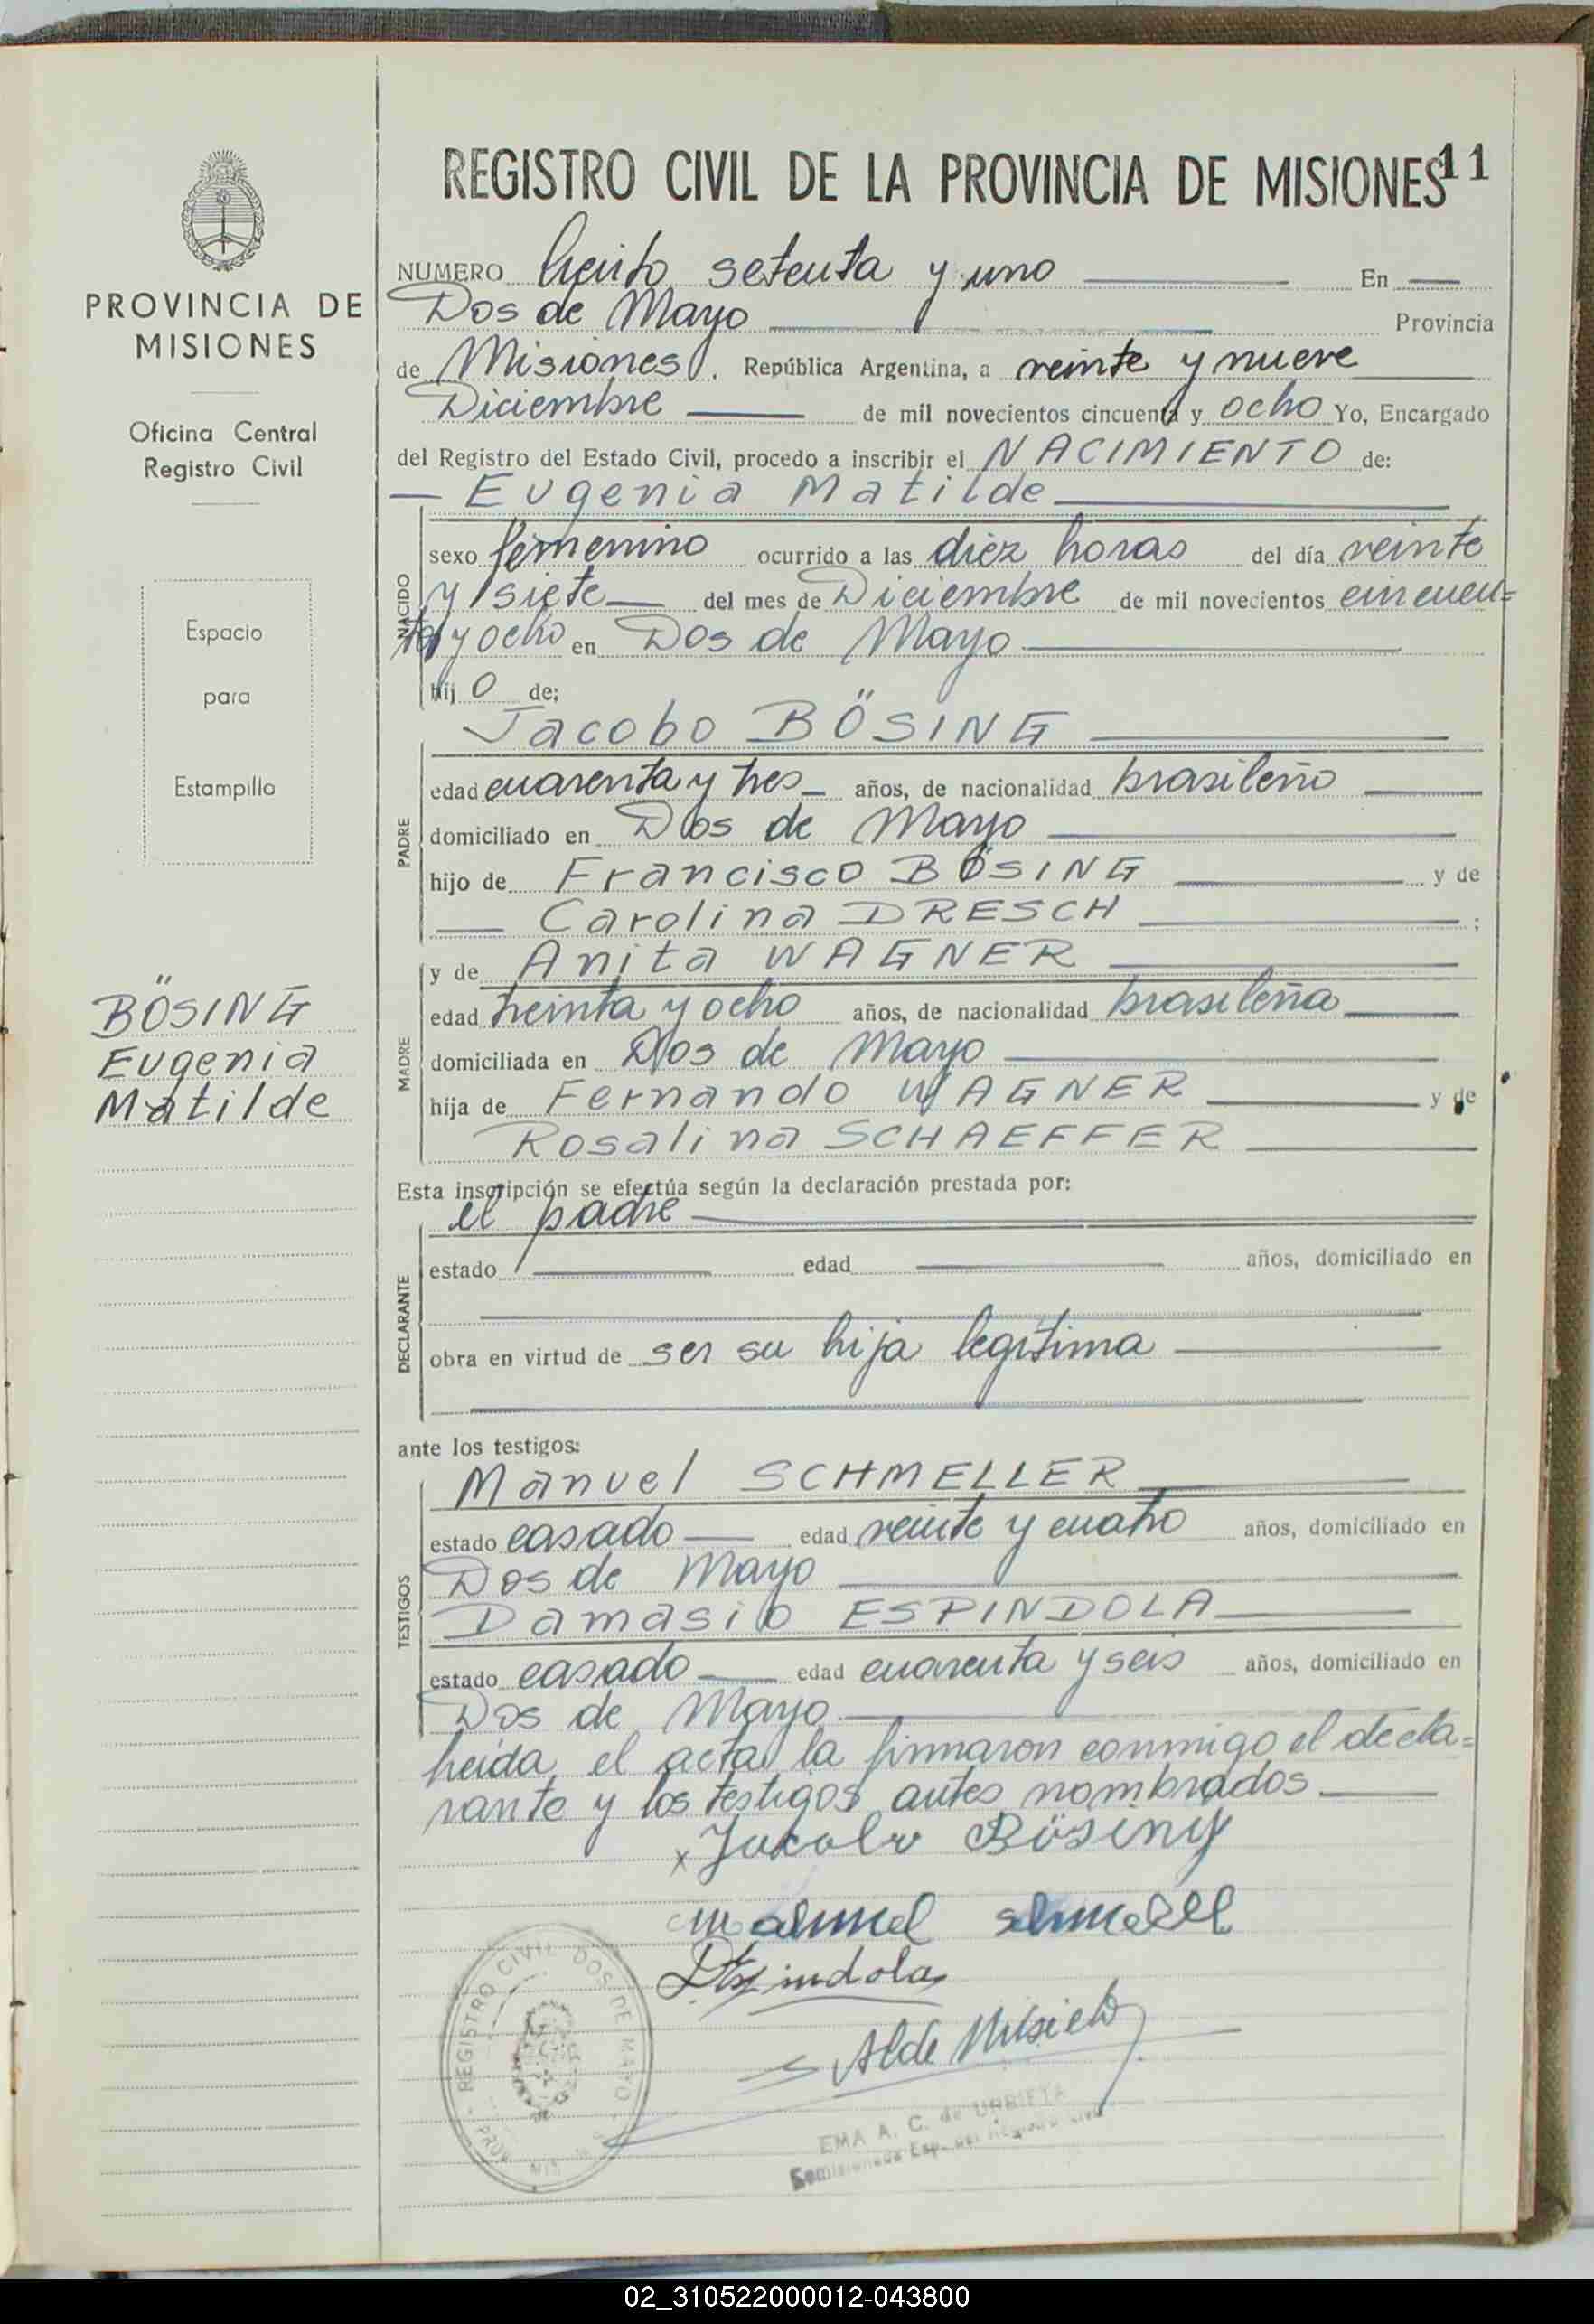 PROVINCIA DE
MISIONES
Oficina Central
Registro Civil
Espacio
para
Estampilla
BÖSING
Eugenia
Matilde
REGISTRO CIVIL DE LA PROVINCIA DE MISIONES 11
NUMERO Ciento setenta y uno En
Dos de Mayo Provincia
de Misiones. República Argentina, a veinte y nueve
Diciembre de mil novecientos cincuenta y ocho Yo, Encargado
del Registro del Estado Civil, procedo a inscribir el NACIMIENTO de:
Eugenia Matilde
NACIDO
sexo femenino ocurrido a las diez horas del día veinte
y siete del mes de Diciembre de mil novecientos cincuen=
ta y ocho en Dos de Mayo
hij o de:
Jacobo BÖSING
PADRE
edad cuarenta y tres años, de nacionalidad brasileño
domiciliado en Dos de Mayo
hijo de Francisco BÖSING y de
Carolina DRESCH ;
y de Anita WAGNER
MADRE
edad treinta y ocho años, de nacionalidad brasileña
domiciliada en Dos de Mayo
hija de Fernando WAGNER y de
Rosalina SCHAEFFER
Esta inscripción se efectúa según la declaración prestada por:
el padre
DECLARANTE
estado edad años, domiciliado en
obra en virtud de ser su hija legítima
ante los testigos:
Manuel SCHMELLER
TESTIGOS
estado casado edad veinte y cuatro años, domiciliado en
Dos de Mayo
Damasio ESPINDOLA
estado casado edad cuarenta y seis años, domiciliado en
Dos de Mayo
Leida el acta la firmaron conmigo el decla=
rante y los testigos antes nombrados
x Jakob Bösing
manuel
DEspindola
REGISTRO CIVIL DOS DE MAYO
PROV. MIS
EMA A. C. de URRIETA
02_310522000012-043800